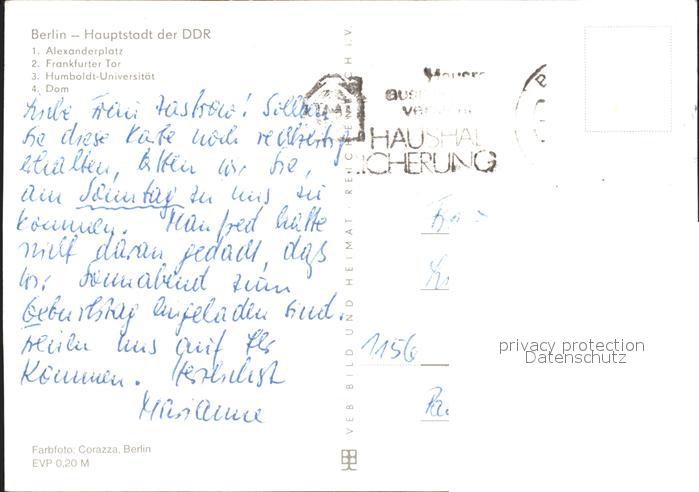 Berlin – Hauptstadt der DDR
1. Alexanderplatz
2. Frankfurter Tor
3. Humboldt-Universität
4. Dom
Liebe Frau Zastrow! Sollten
Sie diese Karte noch rechtzeitig
erhalten, bitten wir Sie,
am Sonntag zu uns zu
kommen. Manfred hatte
nicht daran gedacht, daß
wir Sonnabend zum
Geburtstag eingeladen sind.
Freuen uns auf Ihr
Kommen. Herzlichst
Marianne
Farbfoto: Corazza, Berlin
EVP 0,20 M
VEB BILD UND HEIMAT REICHENBACH i. V.
HAUSHAL
ICHERUNG
1156
privacy protection
Datenschutz